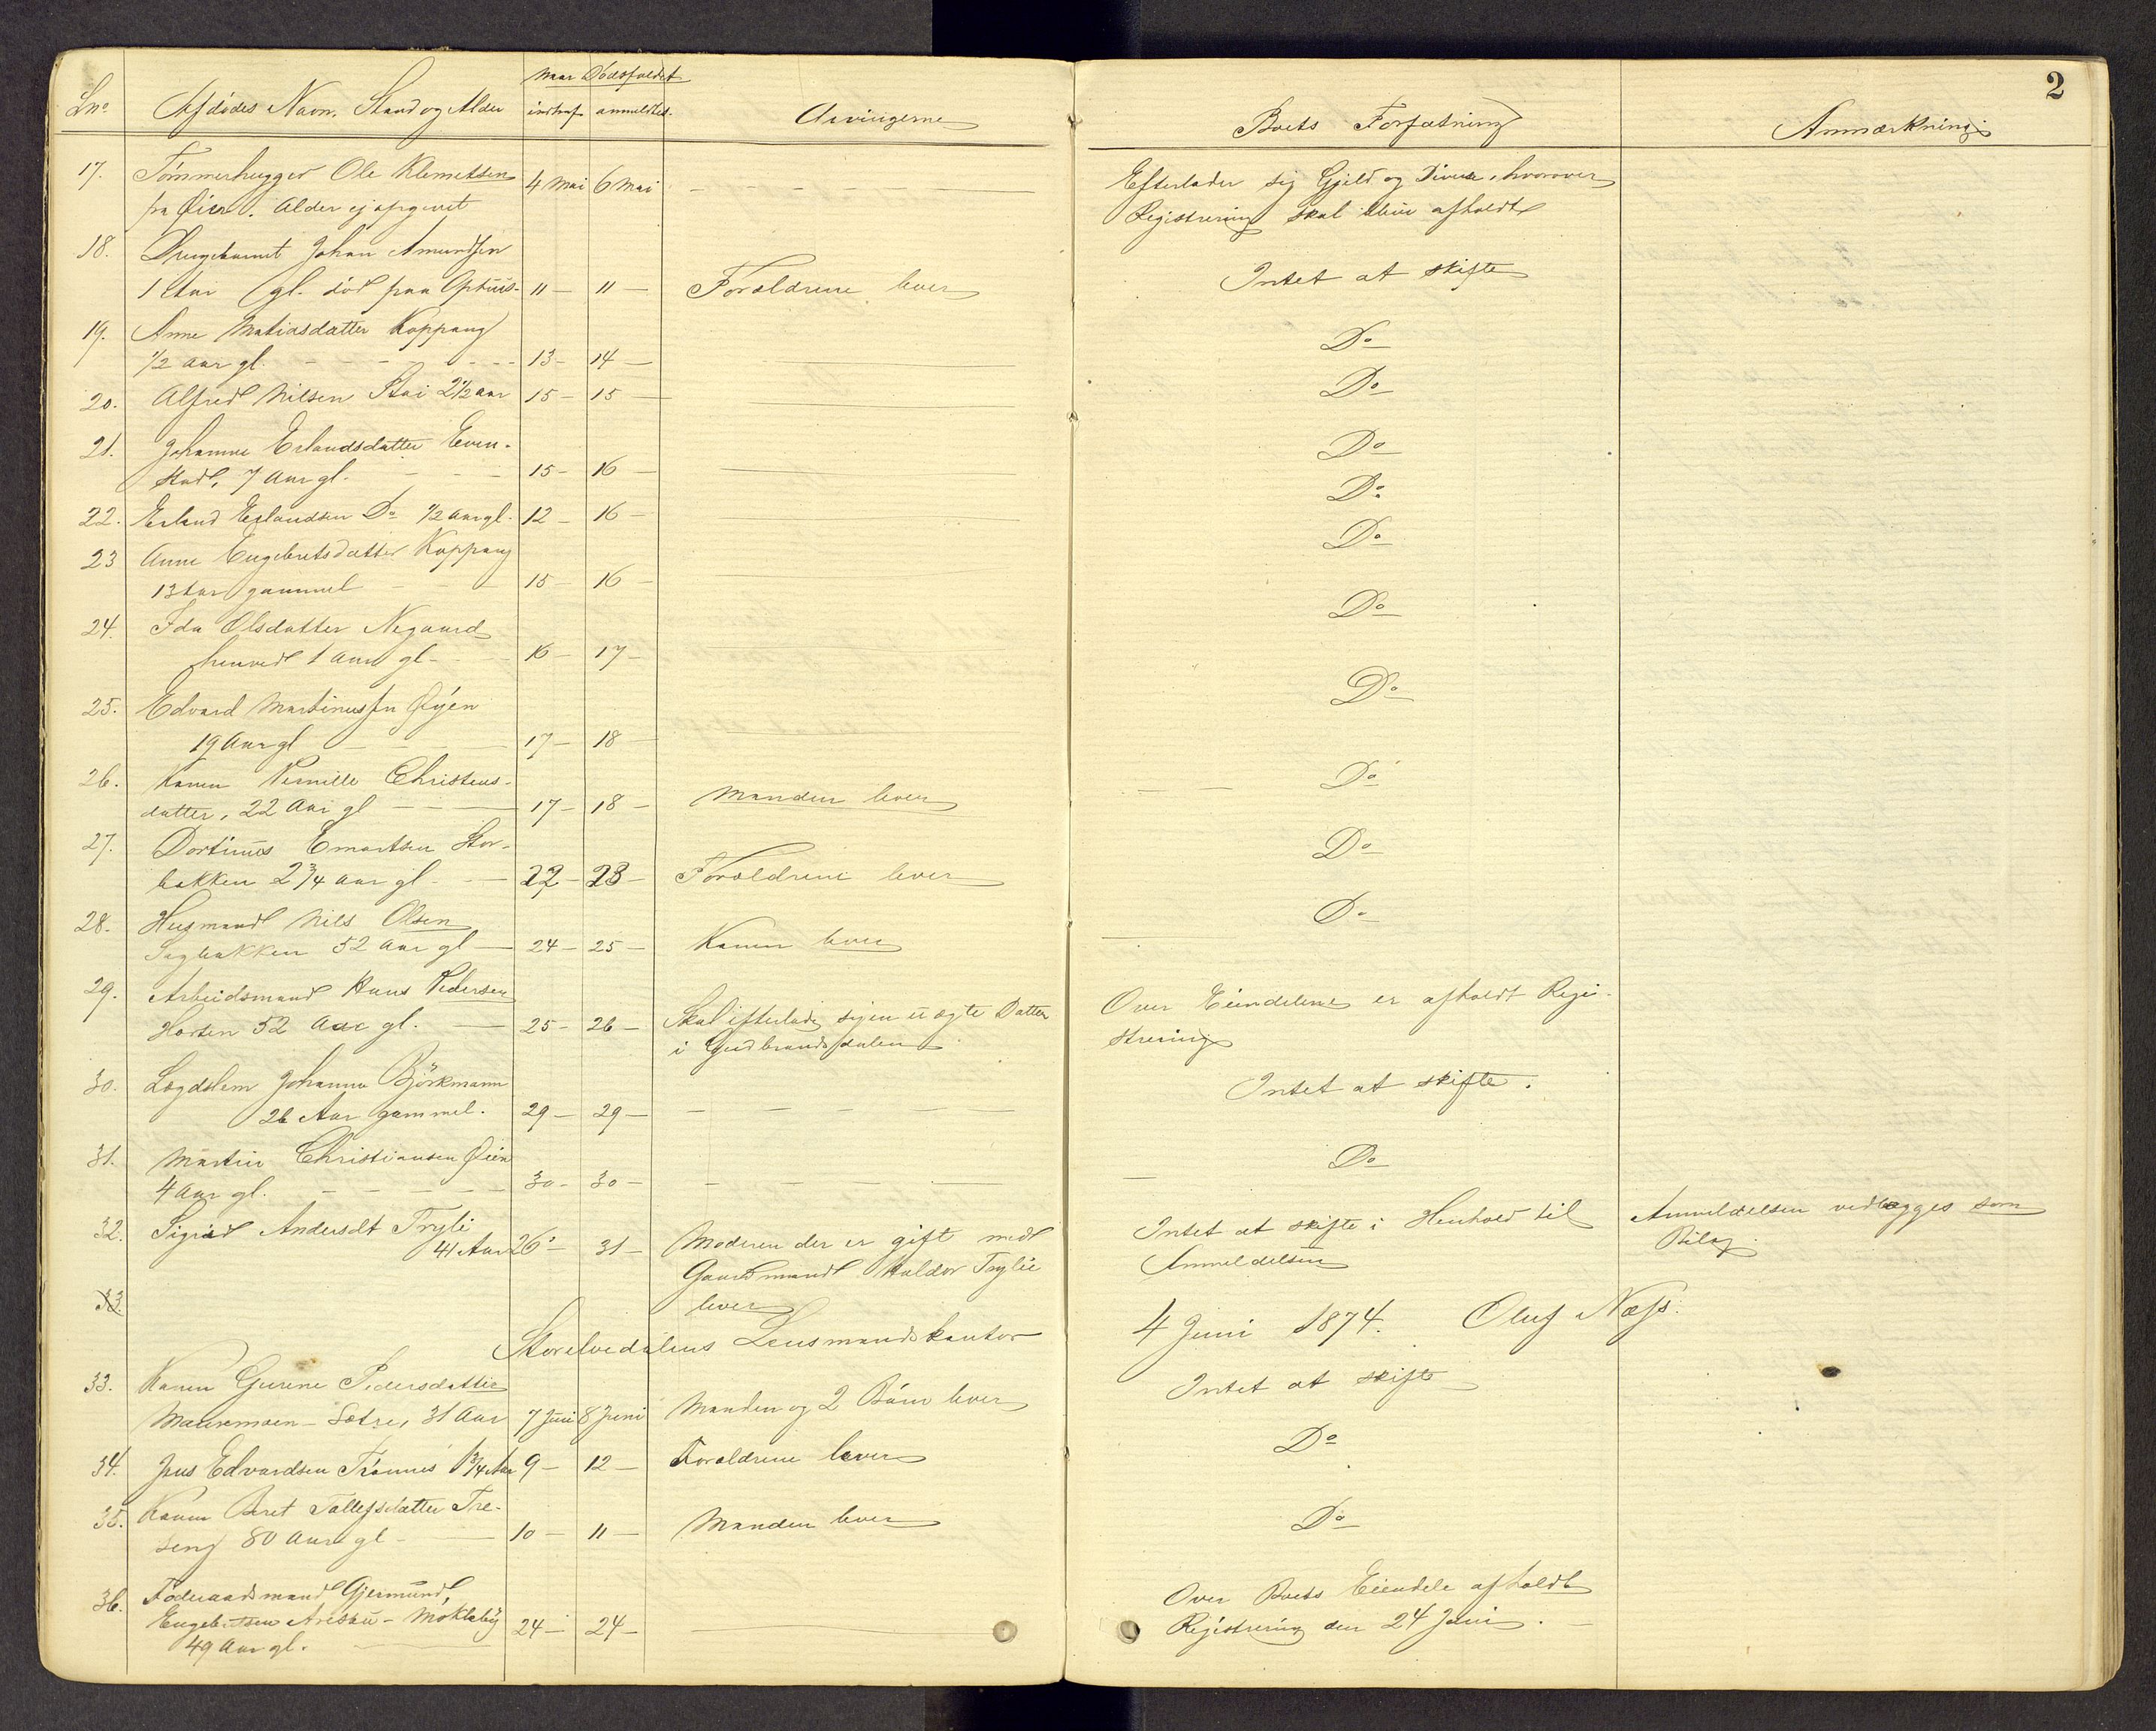 2
Naar Dødsfaldet
Lno Afdødes Navn, Stand og Alder indtraf anmeldtes. Arvingerne Boets Forfatning Anmærkning
17. Tømmerhugger Ole Klemetsen 4 Mai 6 Mai — Efterlader sig Gjeld og Diverse, hvorover
fra Øier. Alder ej opgivet Registrering skal blive afholdt
18. Drengebarnet Johan Amundsen
1 Aar gl. død paa 11 — 11 — Forældrene lever Intet at skifte
19. Anne Matiasdatter Koppang
1/2 Aar gl. 13 — 14 — Do
20. Alfred Nilsen Stai 2 1/2 Aar 15 — 15 — Do
21. Johanne Erlandsdatter Even-
stad, 7 Aar gl. 15 — 16 — Do
22. Erland Erlandsen Do 1/2 Aar gl. 12 — 16 — Do
23 Anne Engebretsdatter Koppang
13 Aar gammel 15 — 16 — Do
24. Ida Olsdatter Negaard
henved 1 Aar gl. 16 — 17 — Do
25. Edvard Martinussen Øyen
19 Aar gl 17 — 18 — Do
26. Konen Pernille Christens-
datter, 22 Aar gl 17 — 18 — Manden lever Do
27. Dortinus Emortsen Stor-
bakken 2 3/4 Aar gl. 22 — 23 — Forældrene lever Do
28. Husmand Nils Olsen
Sagbakken 52 Aar gl 24 — 25 — Konen lever Do
29. Arbeidsmand Hans Pedersen Over Eiendelene er afholdt Regi-
52 Aar gl. 25 — 26 — Skal efterlade sig en uægte Datter strering
i Gudbrandsdalen
30. Lægdslem Johanna Björkmann
26 Aar gammel. 29 — 29 — Intet at skifte.
31. Martin Christiansen Øien
4 Aar gl. 30 — 30 — Do
32. Sigrid Andersdt Trylie
41 Aar 26 — 31 — Moderen der er gift med Intet at skifte i Henhold til Anmeldelsen vedlægges som
Gaardmand Haldor Trylie Anmeldelsen Bilag.
33. lever
Storelvedalens Lensmandskontor 4 Juni 1874. Oluf Næss.
33. Konen Gurine Pedersdatter
Sætre, 31 Aar 7 Juni 8 Juni Manden og 2 Børn lever Intet at skifte
34. Jens Edvardsen Trønnes 1 3/4 Aar 9 — 12 — Forældrene lever Do
35. Konen Beret Tollefsdatter Tre-
seng 80 Aar gl 10 — 11 — Manden lever Do
36. Føderaadsmand Gjermund Over Boets Eiendele afholdt
Engebretsen - Mokleby 24 — 24 — Registrering den 24 Juni.
49 Aar gl.